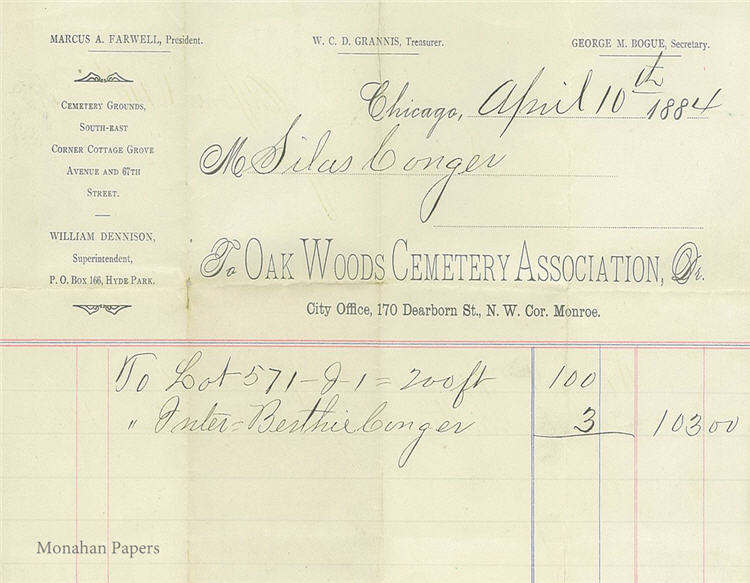 MARCUS A. FARWELL, President.
W. C. D. GRANNIS, Treasurer.
GEORGE M. BOGUE, Secretary.
CEMETERY GROUNDS,
SOUTH-EAST
CORNER COTTAGE GROVE
AVENUE AND 67TH
STREET.
WILLIAM DENNISON,
Superintendent,
P. O. BOX 166, HYDE PARK.
Chicago, April 10th 1884
M Silas Conger
To OAK WOODS CEMETERY ASSOCIATION, Dr.
City Office, 170 Dearborn St., N. W. Cor. Monroe.
To Lot 571-J-1 = 200 ft 100
" Inter = Berthie Conger 3 103 00
Monahan Papers